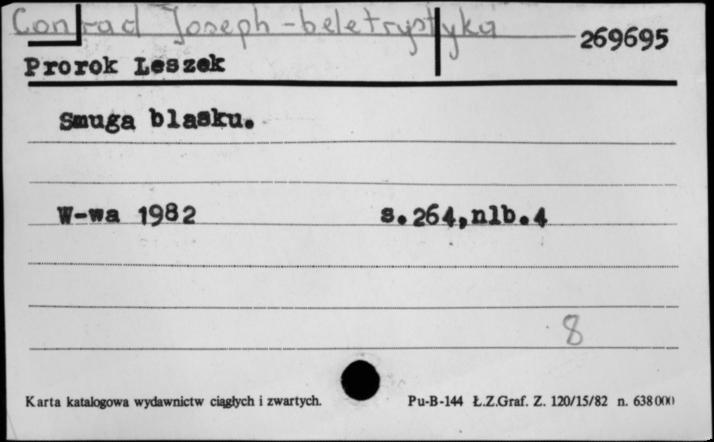 Conrad Joseph - beletrystyka
269695
Prorok Leszek
Smuga blasku.
W-wa 1982 s.264,nlb.4
8
Karta katalogowa wydawnictw ciągłych i zwartych. Pu-B-144 Ł.Z.Graf. Z. 120/15/82 n. 638000